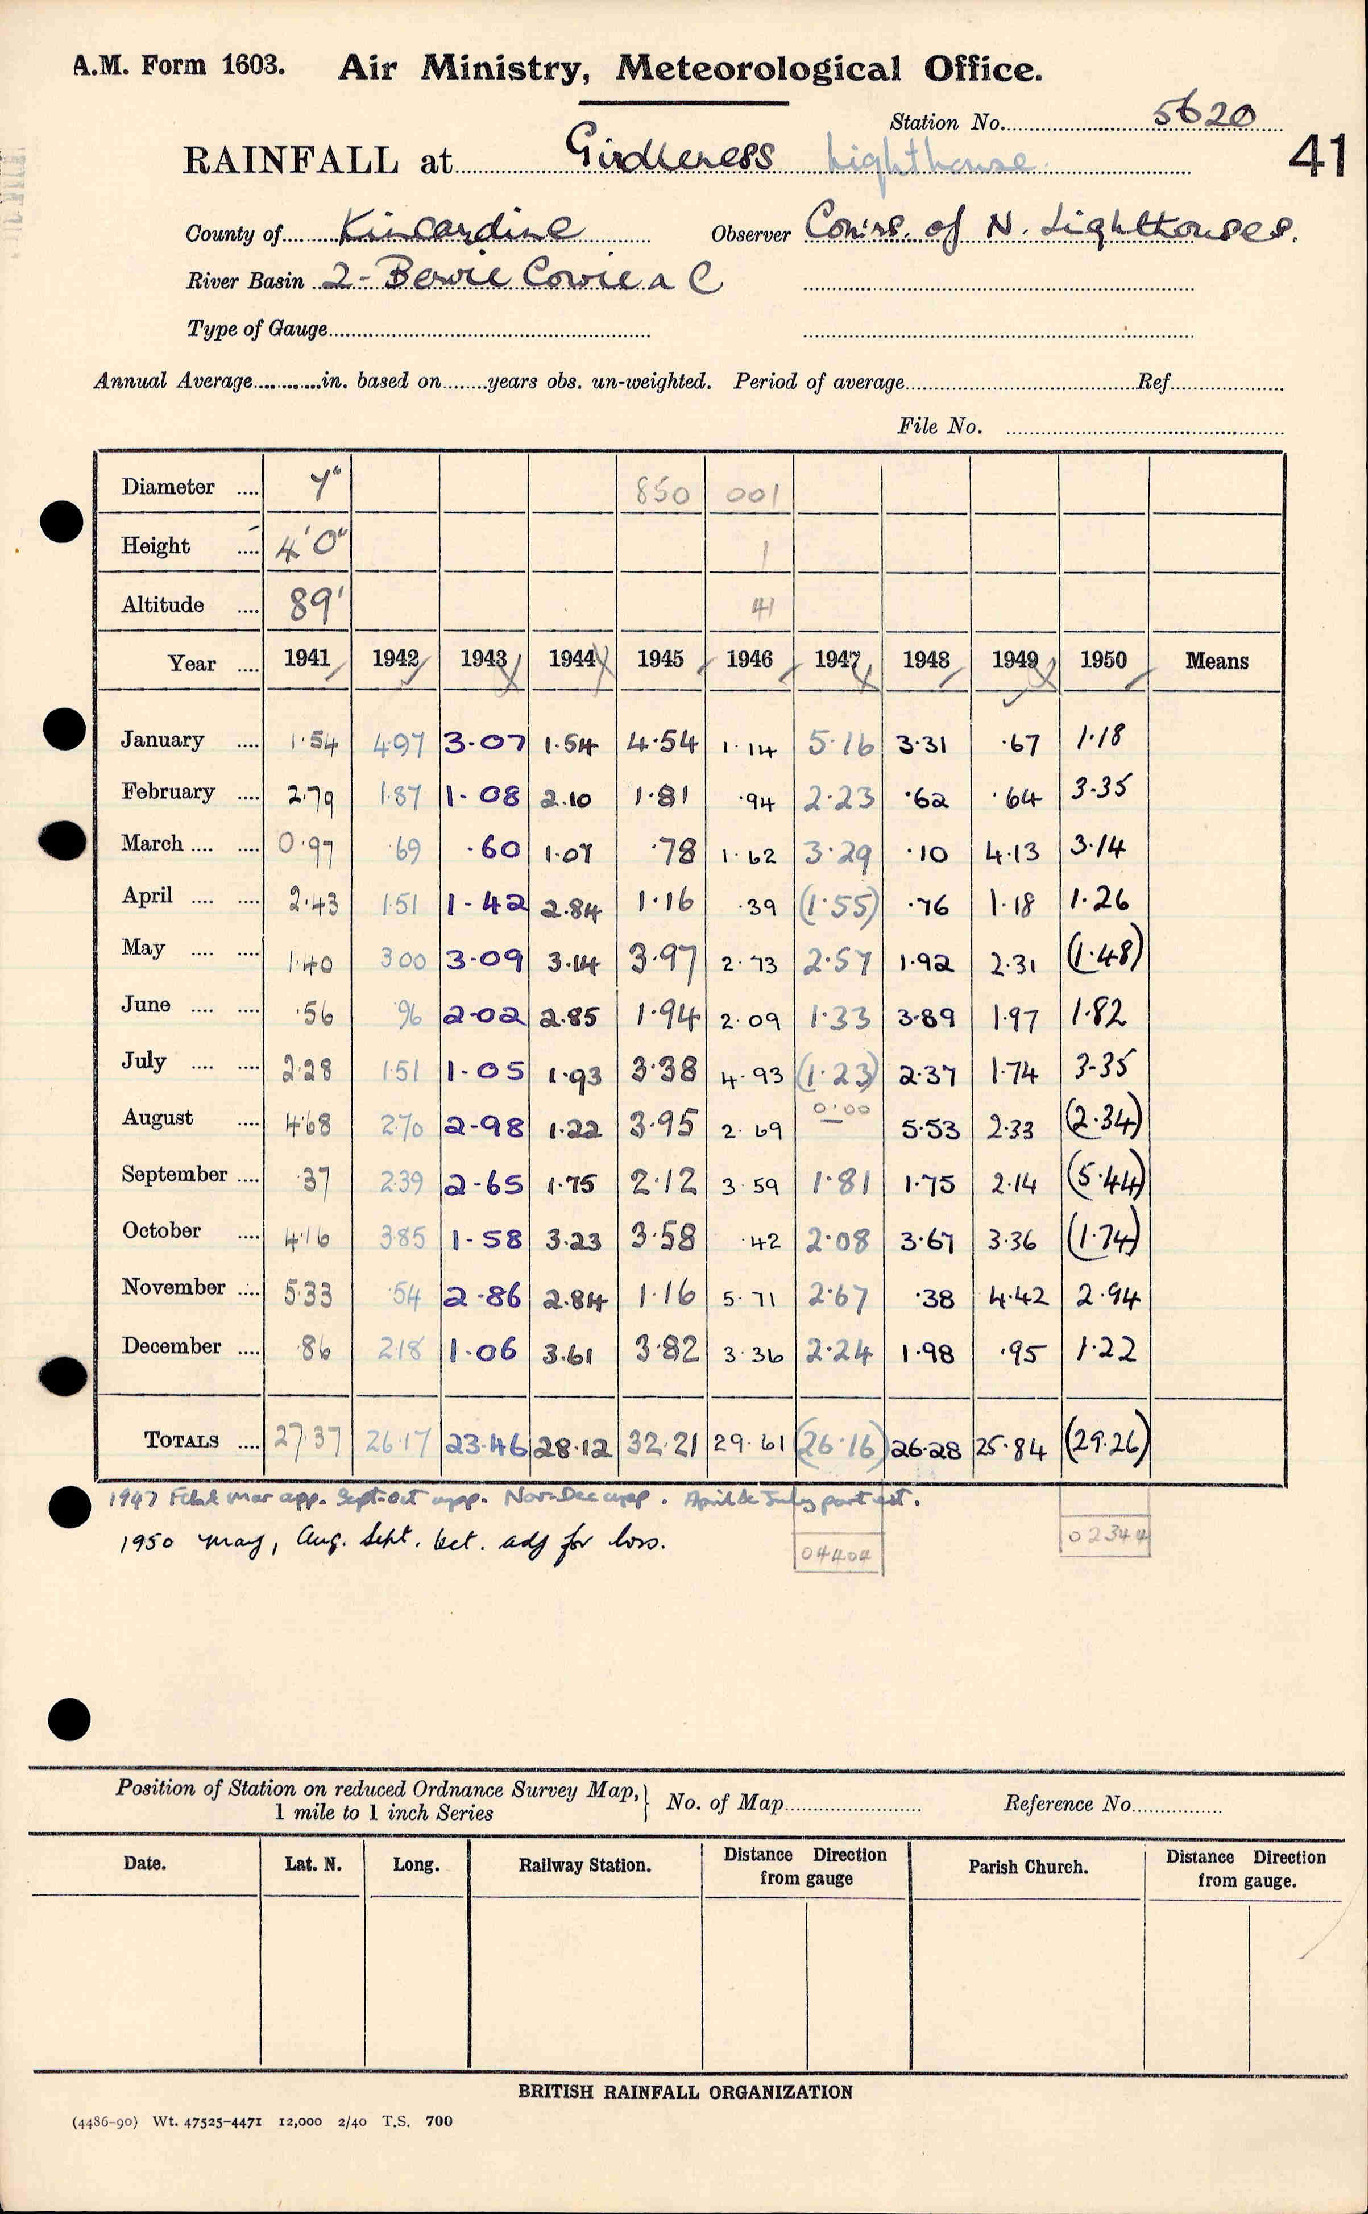 A.M. Form 1603. Air Ministry, Meteorological Office.
Station No. 5620
RAINFALL at Girdleness Lighthouse. 41
County of Kincardine Observer Com'rs. of N. Lighthouses.
River Basin 2 - Bervie Cowie a C
Type of Gauge
Annual Average in. based on years obs. un-weighted. Period of average Ref.
File No.
Diameter .... 7" 850 001
Height .... 4'0" 1
Altitude .... 89' 41
Year .... 1941 1942 1943 1944 1945 1946 1947 1948 1949 1950 Means
January .... 1.54 4.97 3.07 1.54 4.54 1.14 5.16 3.31 .67 1.18
February .... 2.79 1.87 1.08 2.10 1.81 .94 2.23 .62 .64 3.35
March .... .... 0.97 .69 .60 1.07 .78 1.62 3.29 .10 4.13 3.14
April .... .... 2.43 1.51 1.42 2.84 1.16 .39 (1.55) .76 1.18 1.26
May .... .... 1.40 3.00 3.09 3.14 3.97 2.73 2.57 1.92 2.31 (1.48)
June .... .... .56 .96 2.02 2.85 1.94 2.09 1.33 3.89 1.97 1.82
July .... .... 2.28 1.51 1.05 1.93 3.38 4.93 (1.23) 2.37 1.74 3.35
August .... 4.68 2.70 2.98 1.22 3.95 2.69 0.00 5.53 2.33 (2.34)
September .... .37 2.39 2.65 1.75 2.12 3.59 1.81 1.75 2.14 (5.44)
October .... 4.16 3.85 1.58 3.23 3.58 .42 2.08 3.67 3.36 (1.74)
November .... 5.33 .54 2.86 2.84 1.16 5.71 2.67 .38 4.42 2.94
December .... .86 2.18 1.06 3.61 3.82 3.36 2.24 1.98 .95 1.22
TOTALS .... 27.37 26.17 23.46 28.12 32.21 29.61 (26.16) 26.28 25.84 (29.26)
1947 Feb & Mar app. Sept-Oct app. Nov-Dec app. April & July part est.
1950 May, Aug. Sept. Oct. adj for loss.
04404 02344
Position of Station on reduced Ordnance Survey Map, 1 mile to 1 inch Series } No. of Map Reference No.
Date. Lat. N. Long. Railway Station. Distance from gauge Direction Parish Church. Distance Direction from gauge.
BRITISH RAINFALL ORGANIZATION
(4486-90) Wt. 47525-4471 12,000 2/40 T.S. 700